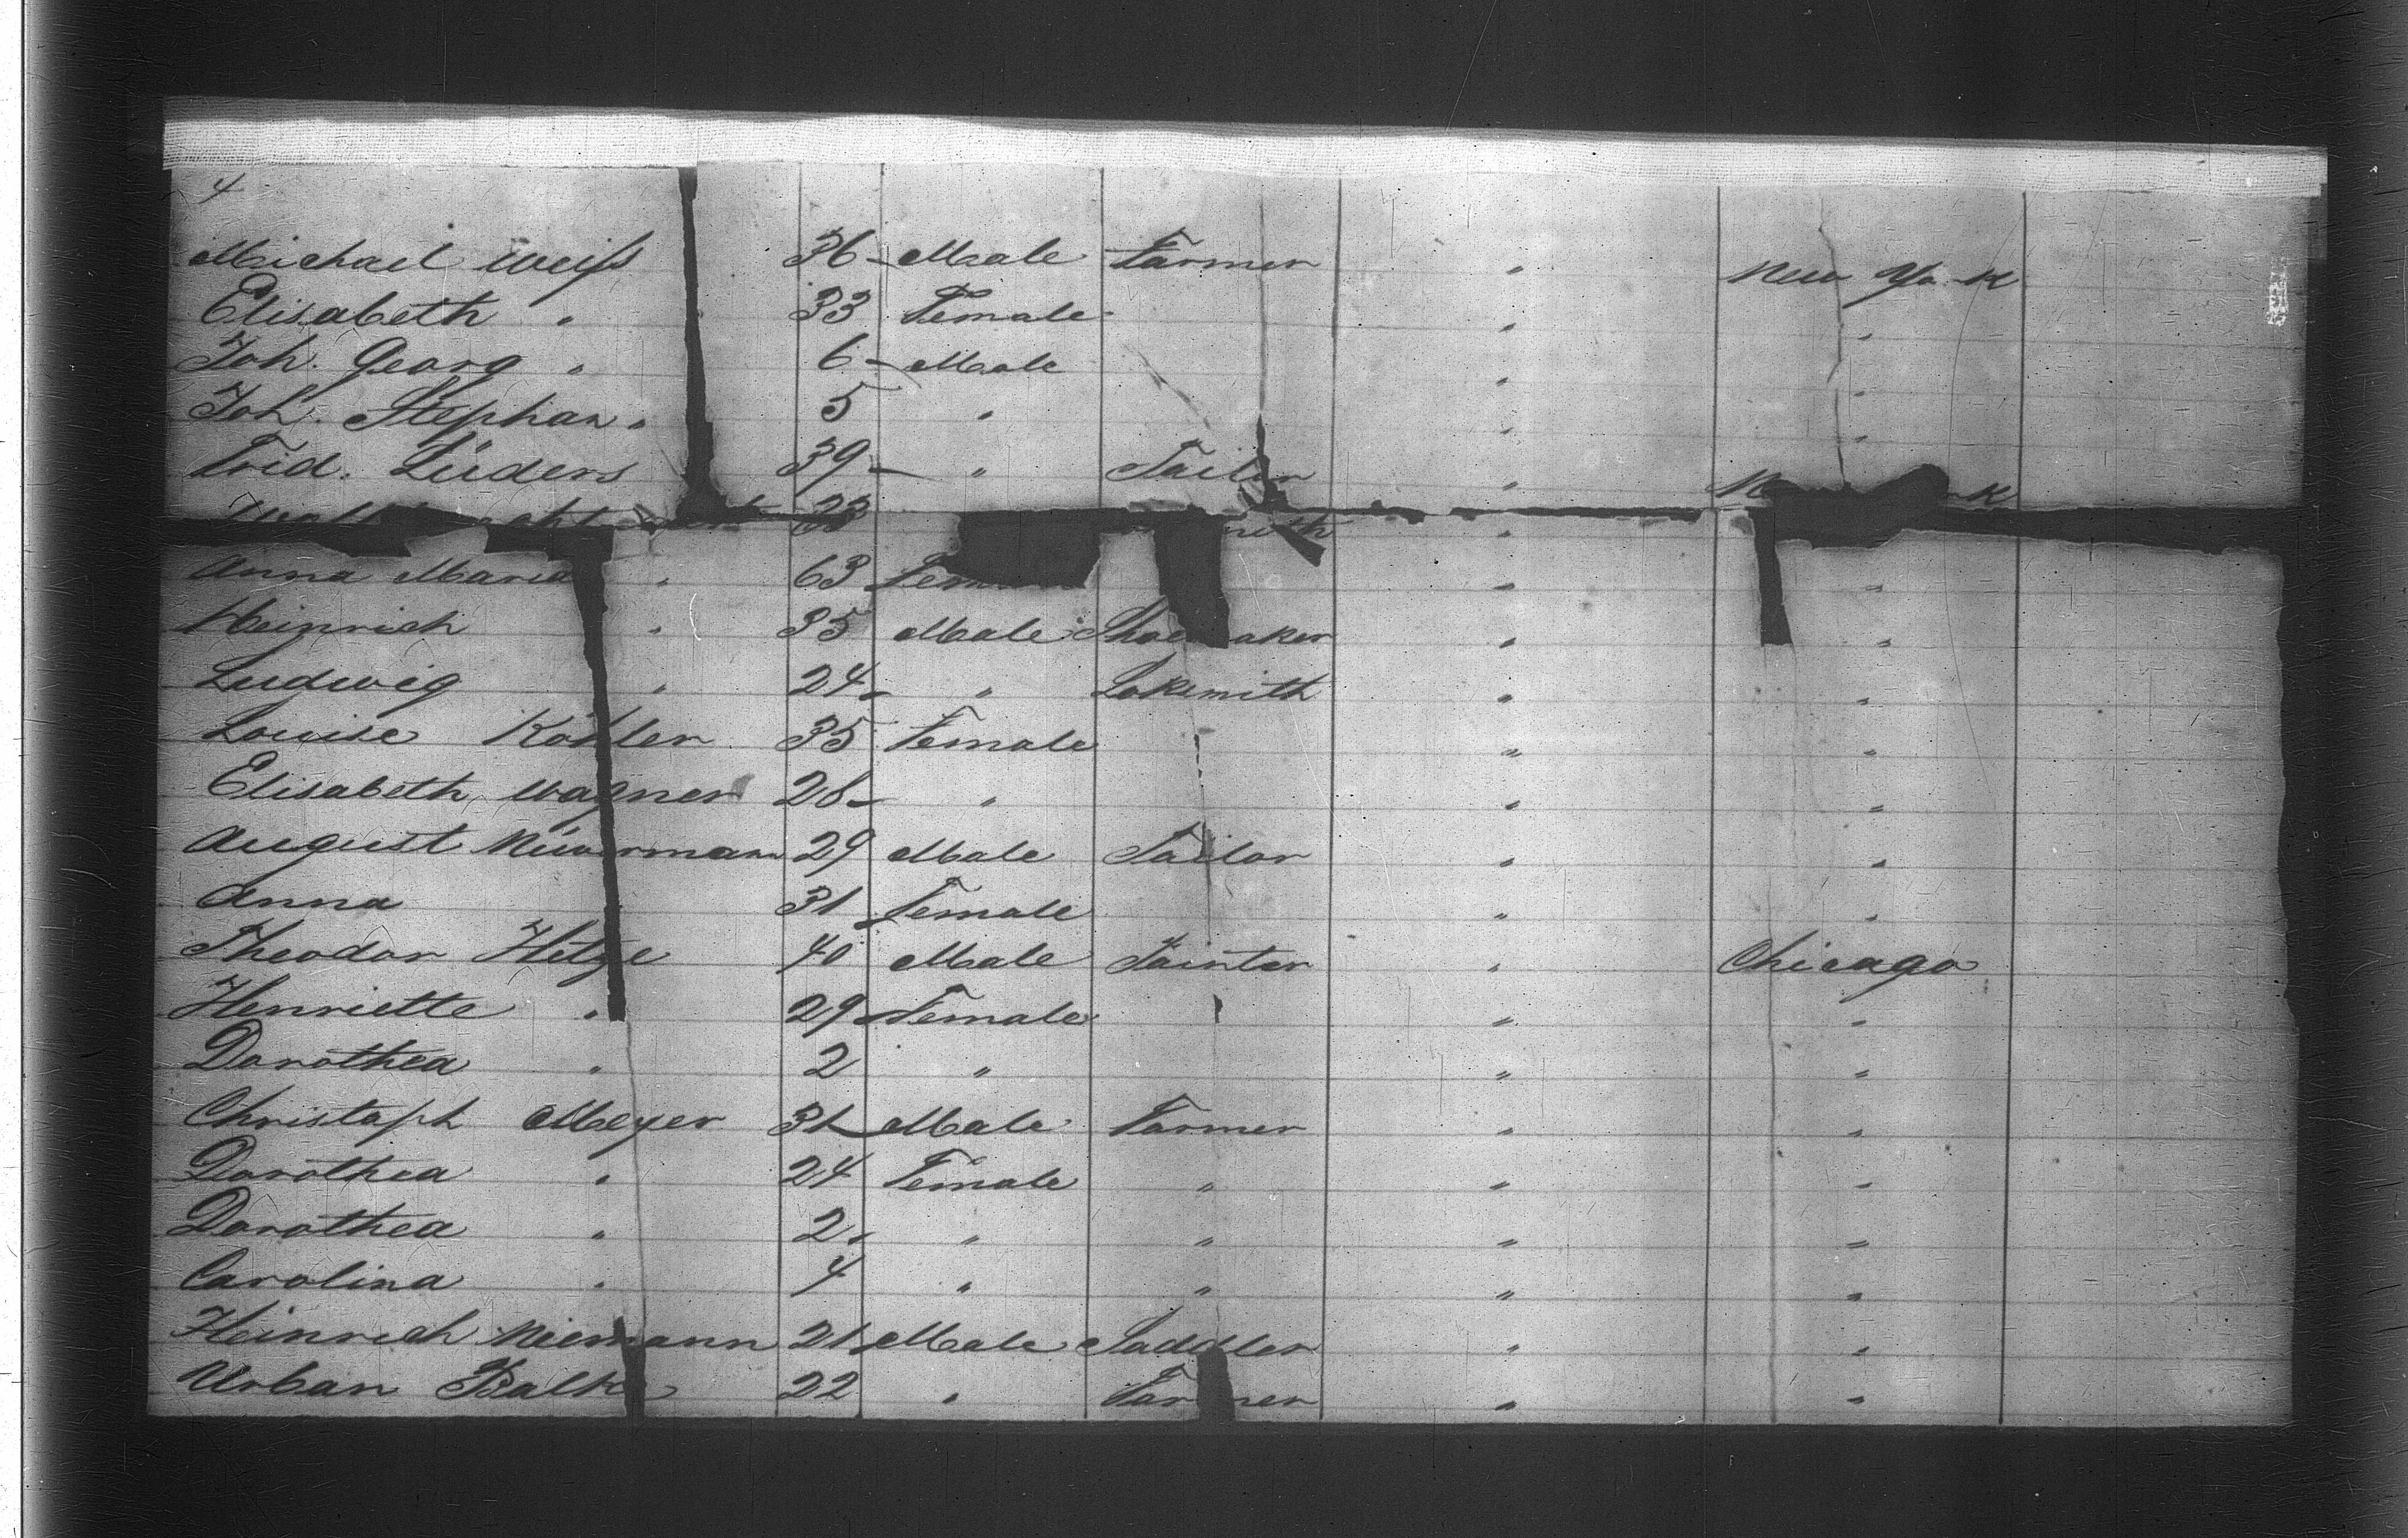 4
Michael Weiß 36 Male Farmer " New York
Elisabeth " 33 Female " "
Joh. Georg " 6 Male " "
Joh. Stephan " 5 " " "
Frid. Lüders 39 " Tailor "
33 "
Anna Maria " 63 " "
Heinrich " 35 Male Shoemaker " "
Ludwig " 24 " Loksmith " "
Louise Köhler 35 Female " "
Elisabeth Wagner 28 " " "
August 29 Male Tailor " "
Anna 31 Female " "
Theodor Hetge 40 Male Painter " Chicago
Henriette " 29 Female " "
Dorothea " 2 " " "
Christoph Meyer 31 Male Farmer " "
Dorothea " 24 Female " " "
Dorothea " 2 " " " "
Carolina " 4 " " " "
Heinrich Niemann 21 Male Saddler " "
Urban Balk 22 " Farmer " "